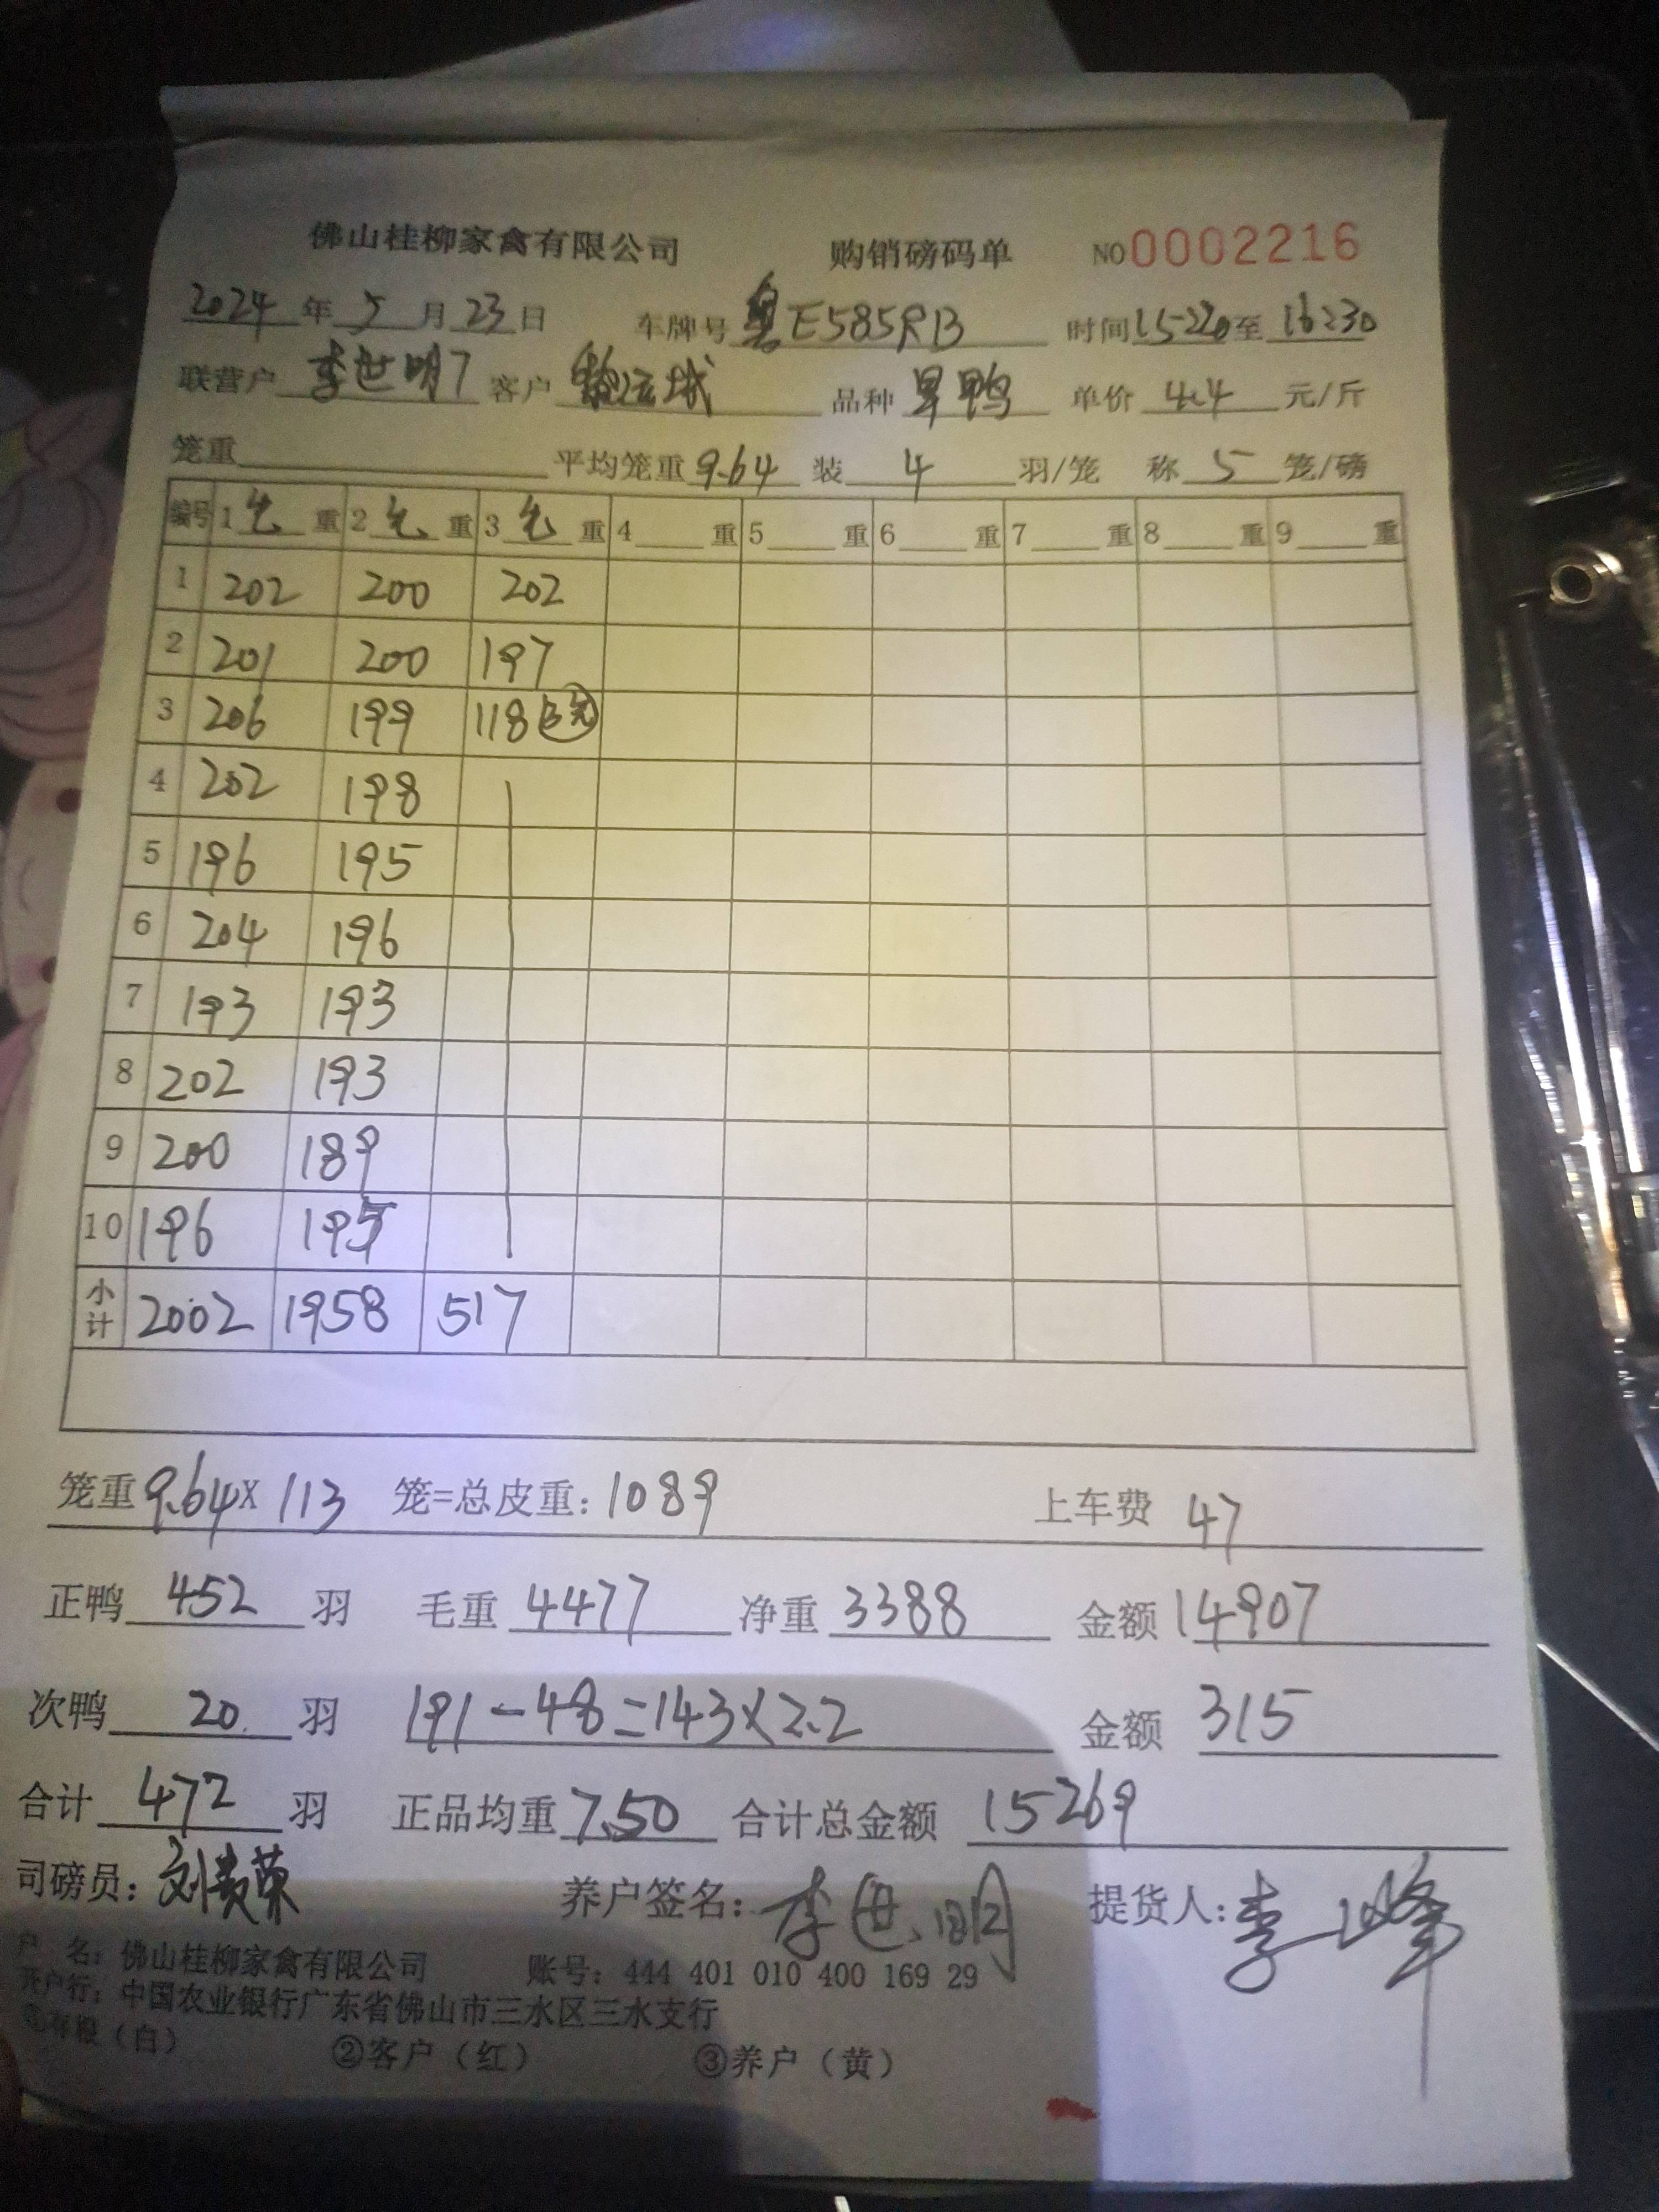 佛山桂柳家禽有限公司 购销磅码单 NO 0002216
2024 年 5 月 23 日 车牌号 粤E585RB 时间 15:20 至 16:30
联营户 李世明7 客户 品种 旱鸭 单价 4.4 元/斤
笼重 平均笼重 9.64 装 4 羽/笼 称 5 笼/磅
编号 1 毛 重 2 毛 重 3 毛 重 4 重 5 重 6 重 7 重 8 重 9 重
1 202 200 202
2 201 200 197
3 206 199 118
4 202 198
5 196 195
6 204 196
7 193 193
8 202 193
9 200 189
10 196 195
小计 2002 1958 517
笼重 9.64 x 113 笼=总皮重: 1089 上车费 47
正鸭 452 羽 毛重 4477 净重 3388 金额 14907
次鸭 20 羽 191-48=143×2.2 金额 315
合计 472 羽 正品均重 7.50 合计总金额 15269
司磅员: 刘贵荣 养户签名: 李世明 提货人: 李峰
户 名: 佛山桂柳家禽有限公司 账号: 444 401 010 400 169 29
开户行: 中国农业银行广东省佛山市三水区三水支行
①存根（白） ②客户（红） ③养户（黄）